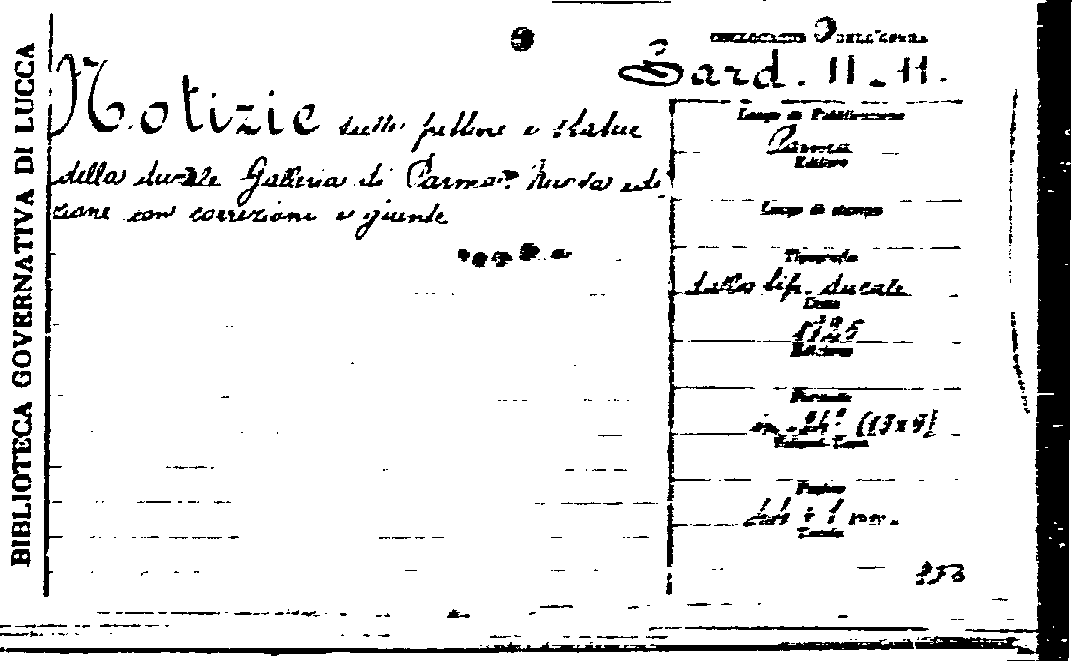 BIBLIOTECA GOVERNATIVA DI LUCCA
COLLOCAZIONE DELL'OPERA
Sard. 11-11.
Notizie sulle pitture e statue
della ducale Galleria di Parma. Nuova edi
zione con correzioni e giunte
Luogo di Pubblicazione
Parma
Editore
Luogo di stampa
Tipografo
dalla tip. ducale
Data
1825
Edizione
Formato
in-24° (13x9)
Volumi
Pagine
Tavole